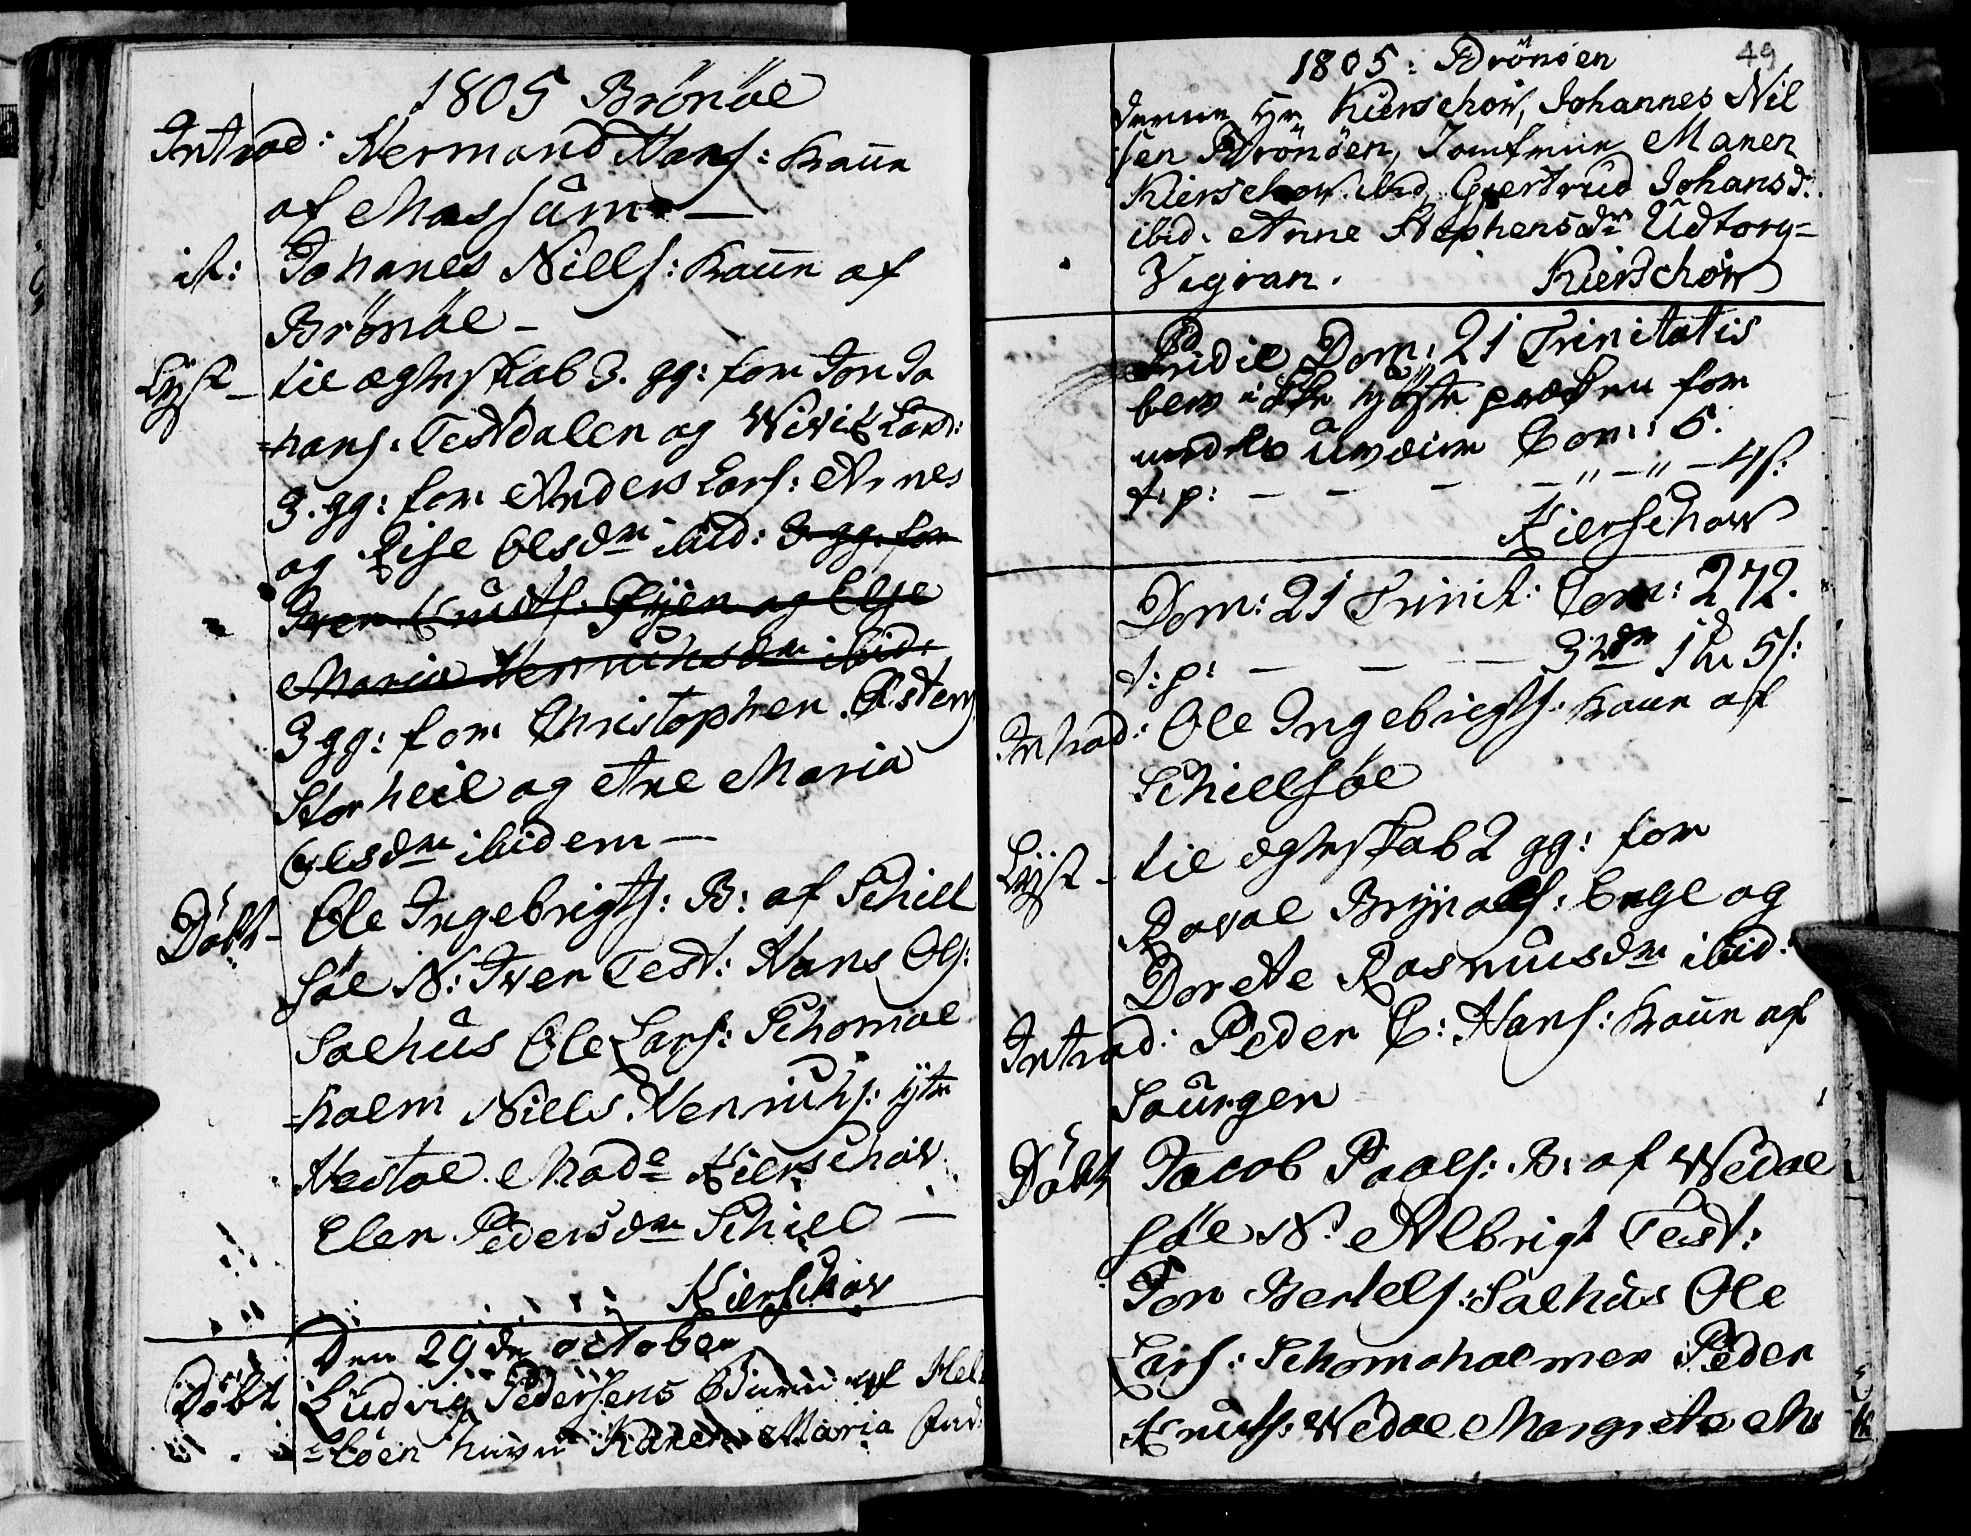 1805 Brönöe
Introd: Nermand Hans: Kaun
af Massum —
it: Johanes Niells: Kaun af
Brönöe —
Lyst — til ægteskab 3. gg: for Jon Jo
=hans. Testdalen og Wivik Lars:
3. gg: for Anders Lars: Arnes
og Lise Olsdr ibid: 3 gg. for
Iver Knuds. Øyen og Else
Maria Henrichsdr ibid:
3 gg: for Christopher Østens
Storheil og Ane Maria
Olsdr ibidem —
Döbt — Ole Ingebrigts: B: af Schiell
söe N: Iver Test: Hans Ols:
Salhus Ole Lars: Schomoe
=holm Niels Henrichs: ytr
Nestoe. Made Kierschow
Elen Pedersdr Schiel —
Kierschow
Den 29de october
Döbt Ludvig Pedersens Barn af Hel
=löen navn Karen Maria fad:
49
1805: Brönöen
derne Hr Kierschow, Johannes Nil
sen Brönöen, Jomfrue Maren
Kierschow ibid, Giertrud Johansd:
ibid. Anne Stephensdr Udtorg=
Vegran. Kierschow
Pridie Dom: 21 Trinitatis
blev ikke præken for
Com: 6.
t: p: — — — — „ — „ — 4 s:
Kierschow
Dom: 21 Trinit: Com: 272.
t: p: — — — 3 rdr 1 k 5 s:
Introd: Ole Ingebrigts: Kaun af
Schiellsöe
Lyst — til ægteskab 2 gg: for
Roval Brynols: Enge og
Dorete Rasmusdr ibid:
Introd: Peder C: Hans: Kaun af
Saurgen
Döbt Jacob Poals: B: af Wedoe
söe N: Albrigt Test:
Jon Bertels: Salhus Ole
Lars: Schomoholmen Peder
Knuts: Wedoe Margrete Ma